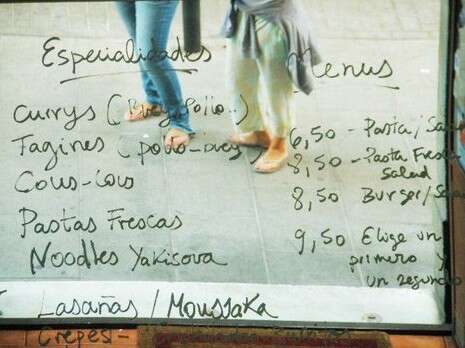 Especialidades
Currys (Buey, Pollo..)
Tagines (pollo-buey)
Cous-Cous
Pastas Frescas
Noodles Yakisova
Lasañas / Moussaka
Crepes-
Menus
6,50 - Pasta/
8,50 - Pasta Fresca
Salad
8,50 Burger/
9,50 Elige un
primero y
un segundo